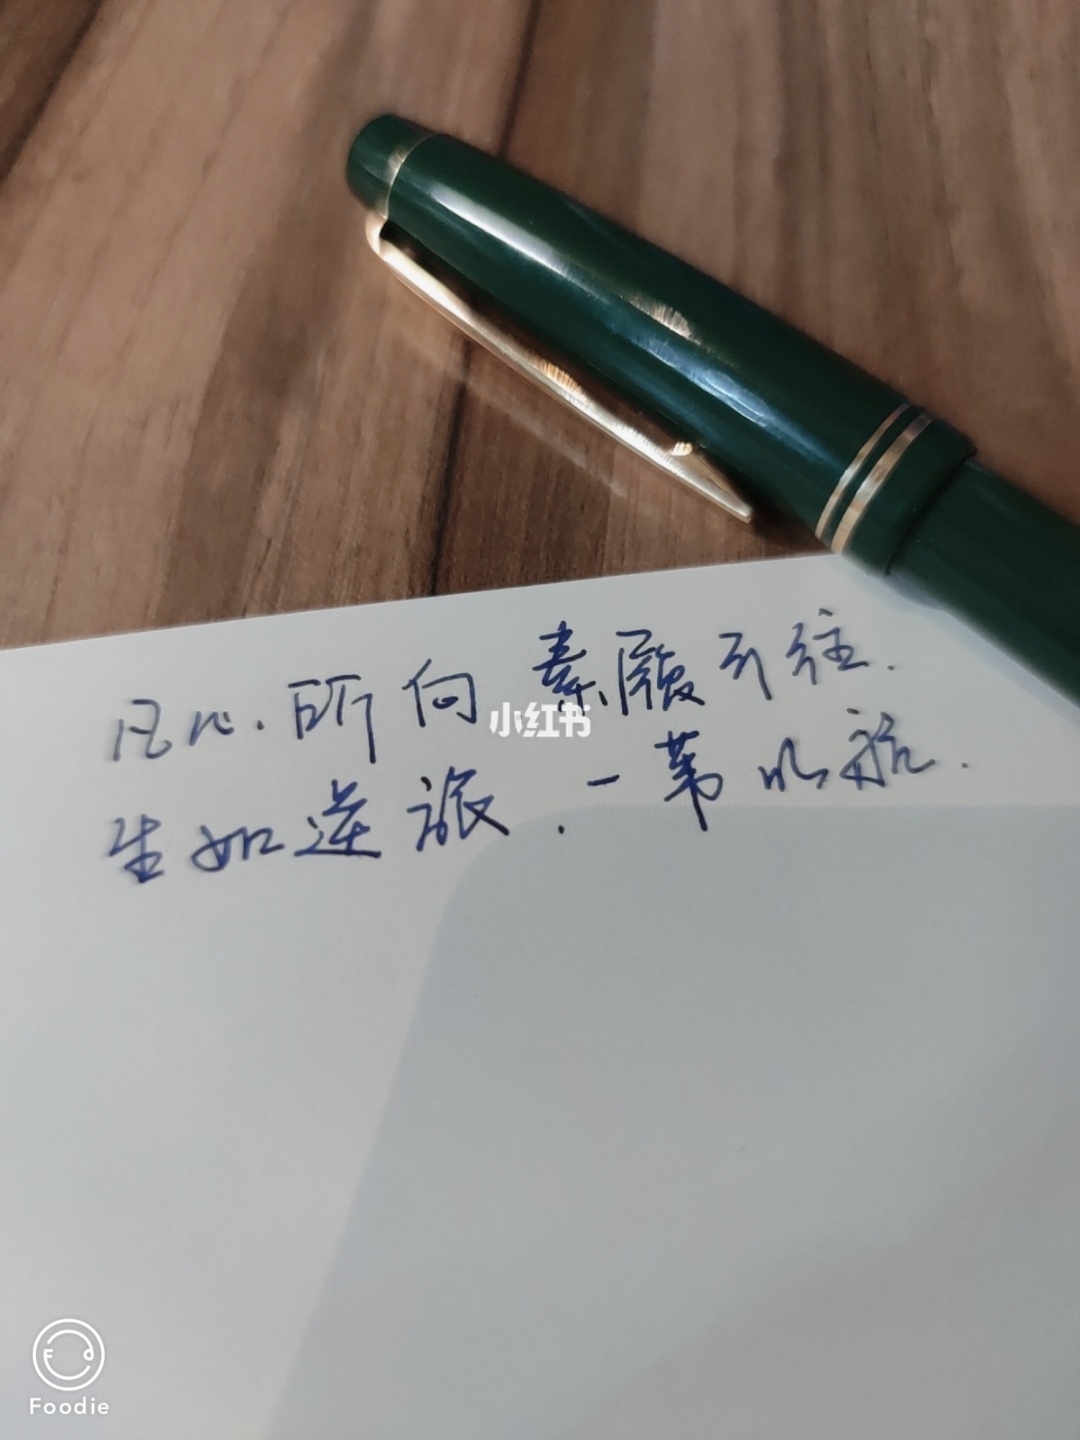 凡心.所向 素履所往.
小红书
生如逆旅.一苇以航.
Foodie